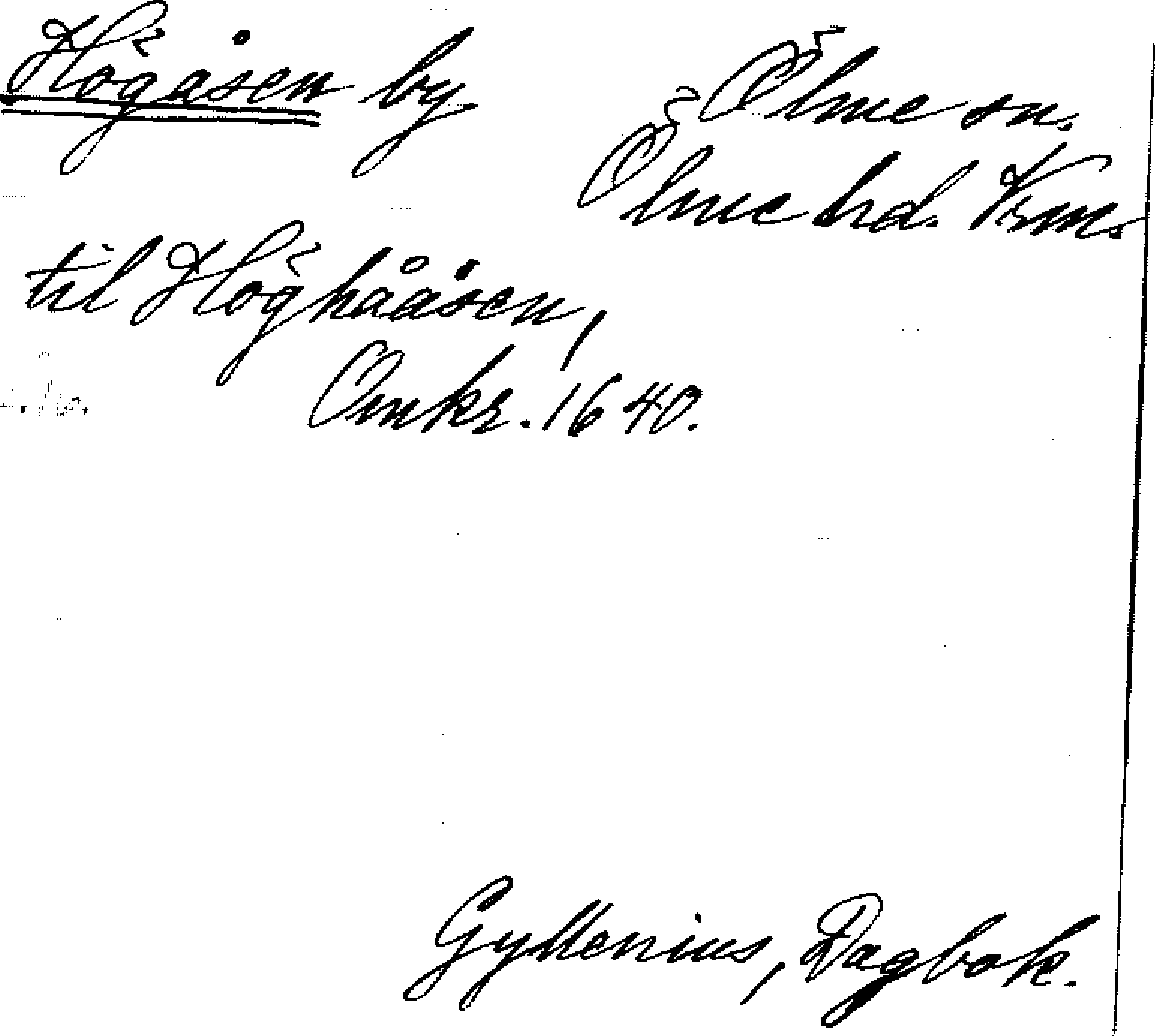 Högåsen by
Ölme sn.
Ölme hd. Vrm.
til Höghååsen,
Omkr. 1640.
Gyllenius, Dagbok.